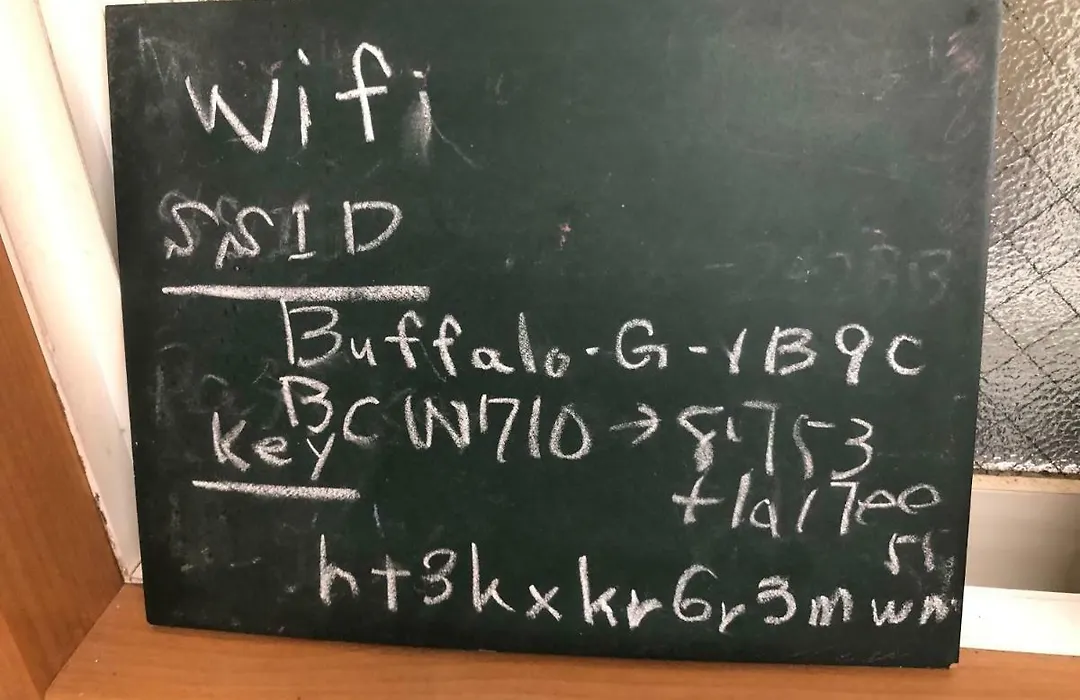 Wifi
SSID
Buffalo-G-rB9C
BCW710→81753
Key
+1a17ee
55
ht3kxkr6r3mwn